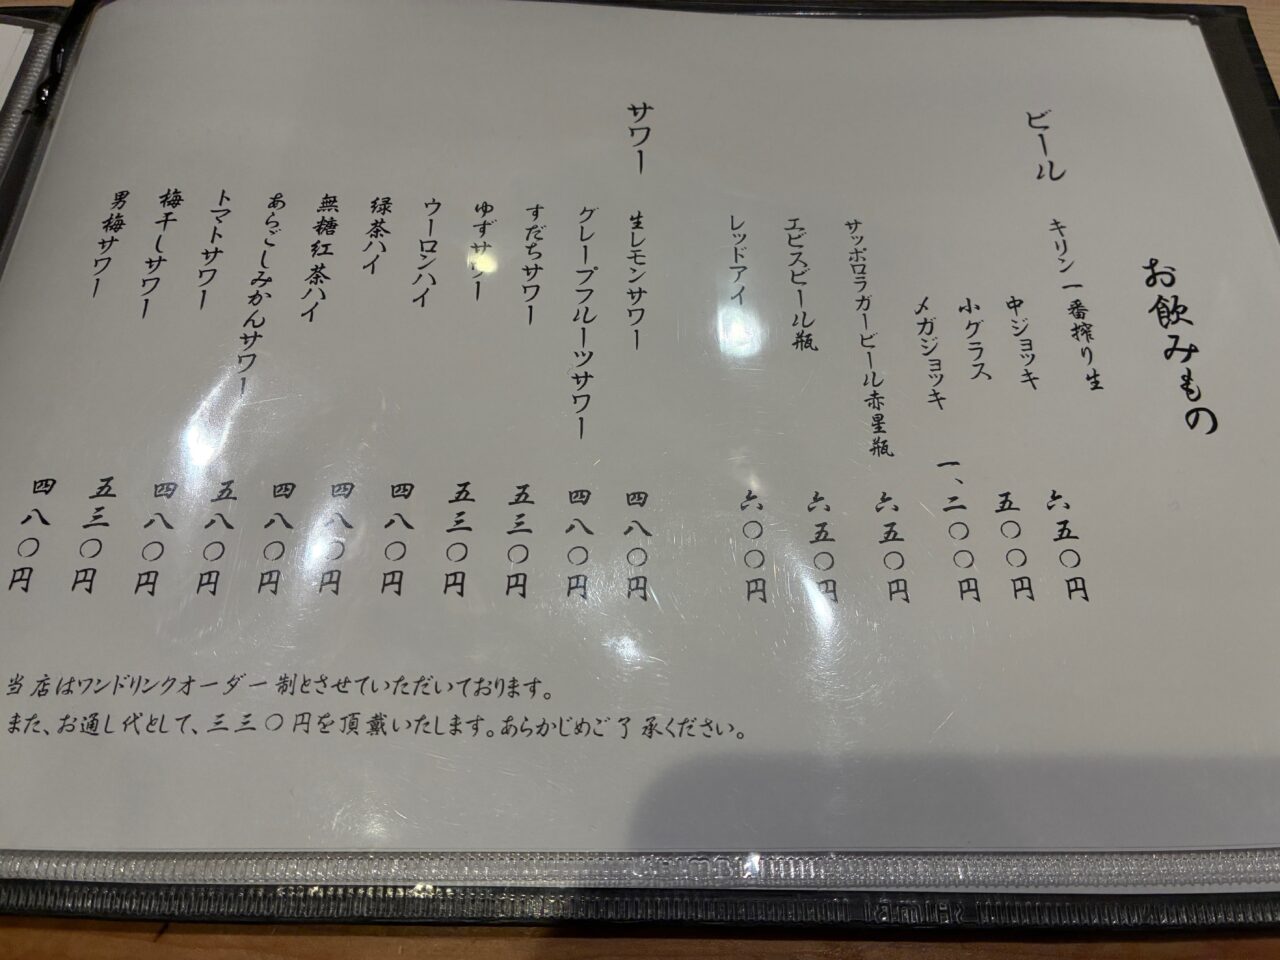 お飲みもの
ビール
キリン一番搾り生
中ジョッキ 六五〇円
小グラス 五〇〇円
メガジョッキ 一、二〇〇円
サッポロラガービール赤星瓶 六五〇円
エビスビール瓶 六五〇円
レッドアイ 六〇〇円
サワー
生レモンサワー 四八〇円
グレープフルーツサワー 四八〇円
すだちサワー 五三〇円
ゆずサワー 五三〇円
ウーロンハイ 四八〇円
緑茶ハイ 四八〇円
無糖紅茶ハイ 四八〇円
あらごしみかんサワー 五八〇円
トマトサワー 四八〇円
梅干しサワー 五三〇円
男梅サワー 四八〇円
当店はワンドリンクオーダー制とさせていただいております。
また、お通し代として、三三〇円を頂戴いたします。あらかじめご了承ください。